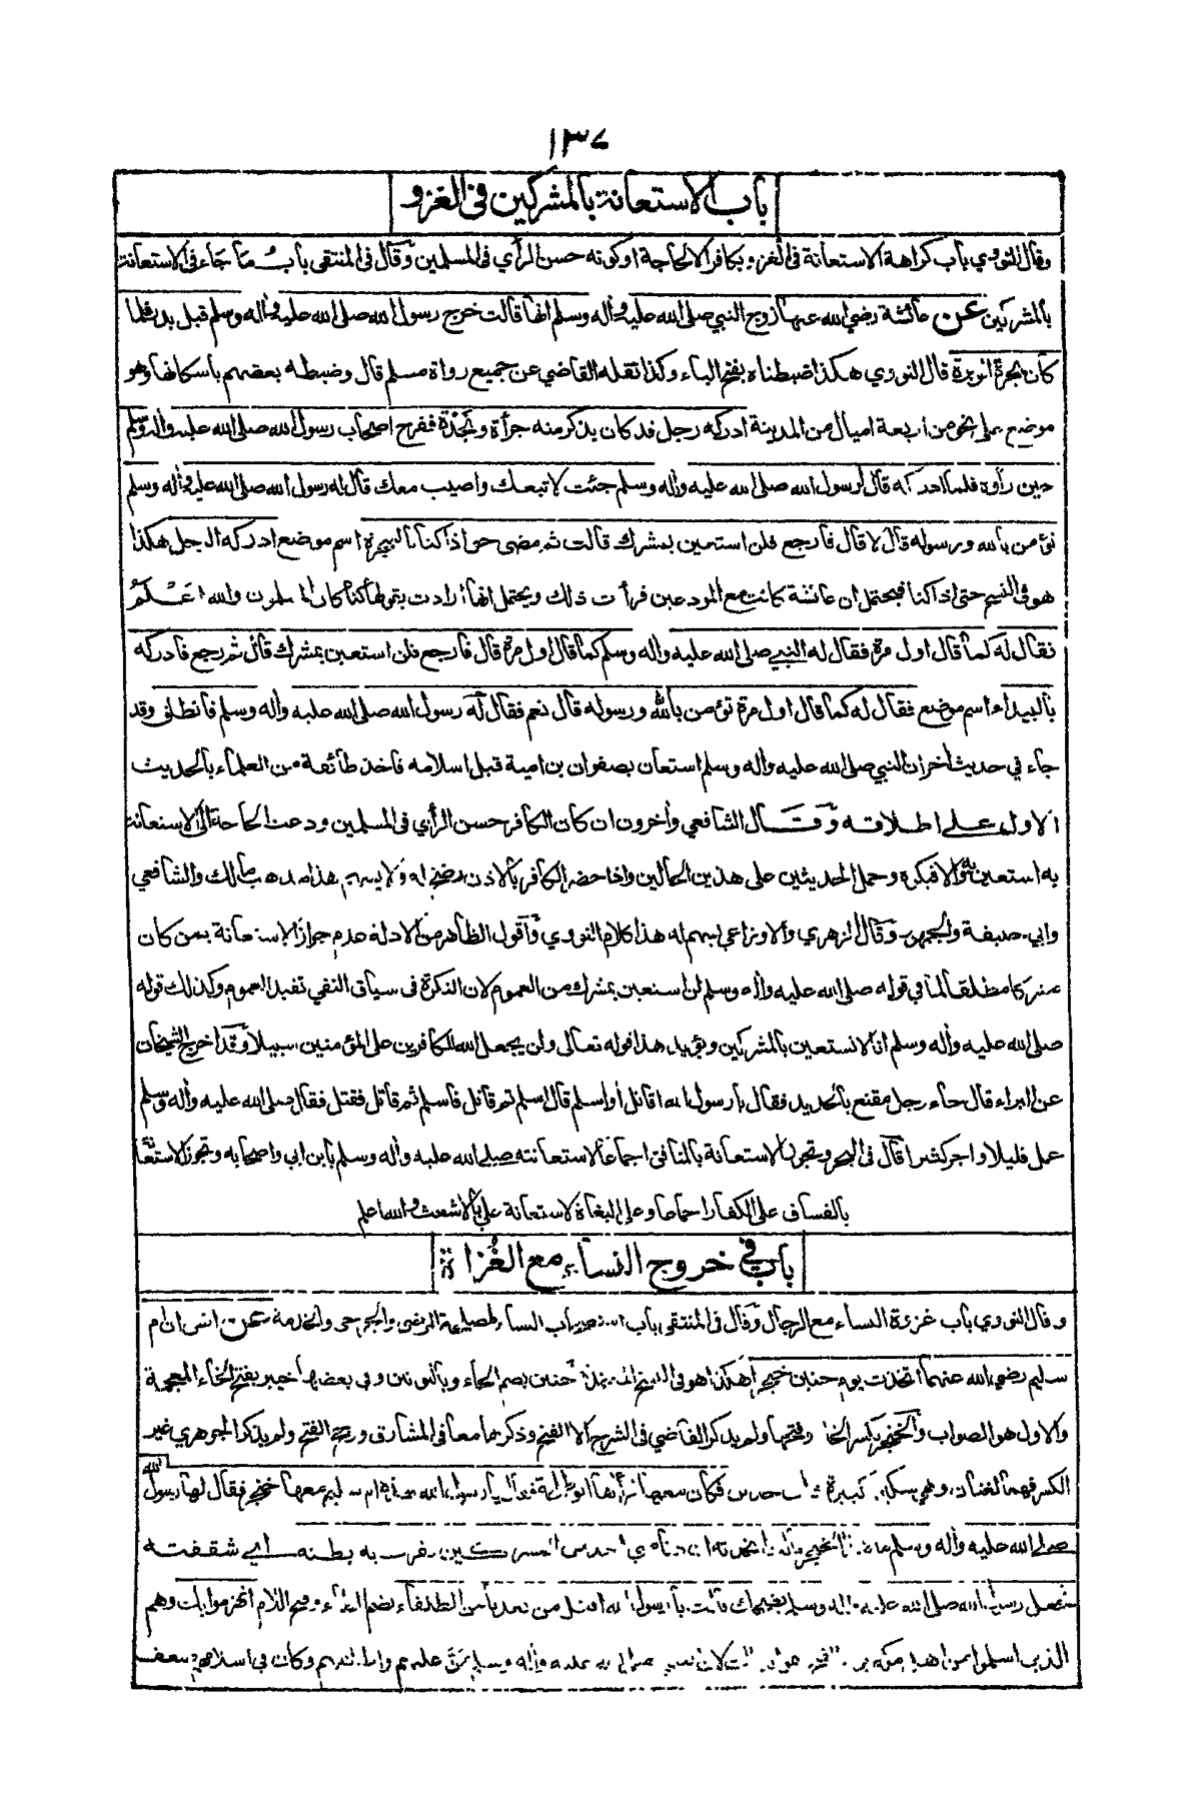 ١٣٧
باب الاستعانة بالمشركين في الغزو
وقال النووي باب كراهة الاستعانة في الغزو بكافر الا لحاجة او كونه حسن الرأي في المسلمين وقال في المنتقى باب ما جاء في الاستعانة
بالمشركين عن عائشة رضي الله عنها زوج النبي صلى الله عليه واله وسلم انها قالت خرج رسول الله صلى الله عليه واله وسلم قبل بدر فلما
كان بحرة الوبرة قال النووي هكذا ضبطناه بفتح الباء وكذا نقله القاضي عن جميع رواة مسلم قال وضبطه بعضهم باسكانها وهو
موضع على نحو من اربعة اميال من المدينة ادركه رجل قد كان يذكر منه جرأة ونجدة ففرح اصحاب رسول الله صلى الله عليه واله وسلم
حين رأوه فلما ادركه قال لرسول الله صلى الله عليه واله وسلم جئت لاتبعك واصيب معك قال له رسول الله صلى الله عليه واله وسلم
تؤمن بالله ورسوله قال لا قال فارجع فلن استعين بمشرك قالت ثم مضى حتى اذا كنا بالشجرة اسم موضع ادركه الرجل هكذا
هو في النسخ حتى اذا كنا فيحتمل ان عائشة كانت مع المودعين فرأت ذلك ويحتمل انها ارادت بقولها كنا كان المسلمون والله اعلم
فقال له كما قال اول مرة فقال له النبي صلى الله عليه واله وسلم كما قال اول مرة قال فارجع فلن استعين بمشرك قال ثم رجع فادركه
بالبيداء اسم موضع فقال له كما قال اول مرة تؤمن بالله ورسوله قال نعم فقال له رسول الله صلى الله عليه واله وسلم فانطلق وقد
جاء في حديث أخر ان النبي صلى الله عليه واله وسلم استعان بصفوان بن امية قبل اسلامه فاخذ طائفة من العلماء بالحديث
الاول على اطلاقه وقال الشافعي وأخرون ان كان الكافر حسن الرأي في المسلمين ودعت الحاجة الى الاستعانة
به استعين به والا فيكره وحمل الحديثين على هذين الحالين واذا حضر الكافر بالاذن رضخ له ولا يسهم هذا مذهب مالك والشافعي
وابي حنيفة والجمهور وقال الزهري والاوزاعي يسهم له هذا كلام النووي وأقول الظاهر من الادلة عدم جواز الاستعانة بمن كان
مشركا مطلقا لما في قوله صلى الله عليه واله وسلم لن استعين بمشرك من العموم لان النكرة في سياق النفي تفيد العموم وكذلك قوله
صلى الله عليه واله وسلم انا لا نستعين بالمشركين ويؤيد هذا قوله تعالى ولن يجعل الله للكافرين على المؤمنين سبيلا وقد اخرج الشيخان
عن البراء قال جاء رجل مقنع بالحديد فقال يا رسول الله اقاتل أو اسلم قال اسلم ثم قاتل فاسلم ثم قاتل فقتل فقال صلى الله عليه واله وسلم
عمل قليلا واجر كثيرا قال في البحر وتجوز الاستعانة بالمنافق اجماعا لاستعانته صلى الله عليه واله وسلم بابن ابي واصحابه وتجوز الاستعانة
بالفساق على الكفار اجماعا وعلى البغاة لاستعانة علي بالاشعث والله اعلم
باب في خروج النساء مع الغزاة
وقال النووي باب غزوة النساء مع الرجال وقال في المنتقى باب استصحاب النساء لمصلحة المرضى والجرحى والخدمة عن انس ان ام
سليم رضي الله عنهما اتخذت يوم حنين خنجرا هكذا هو في النسخ حنين بضم الحاء وبالنونين وفي بعضها خيبر بفتح الخاء المعجمة
والاول هو الصواب والخنجر بكسر الخاء وفتحها ولم يذكر القاضي في الشرح الا الفتح وذكرهما معا في المشارق ورجح الفتح ولم يذكر الجوهري غير
الكسر فهما لغتان وهي سكين كبيرة ذات حدين فكان معها فرأها ابو طلحة فقال يا رسول الله هذه ام سليم معها خنجر فقال لها رسول الله
صلى الله عليه واله وسلم ما هذا الخنجر قالت اتخذته ان دنا مني احد من المشركين بقرت به بطنه اي شققته
فجعل رسول الله صلى الله عليه واله وسلم يضحك قالت يا رسول الله اقتل من بعدنا من الطلقاء بضم الطاء وفتح اللام انهزموا بك وهم
الذين اسلموا من اهل مكة يوم الفتح النبي صلى الله عليه واله وسلم من عليهم واطلقهم وكان في اسلامهم ضعف